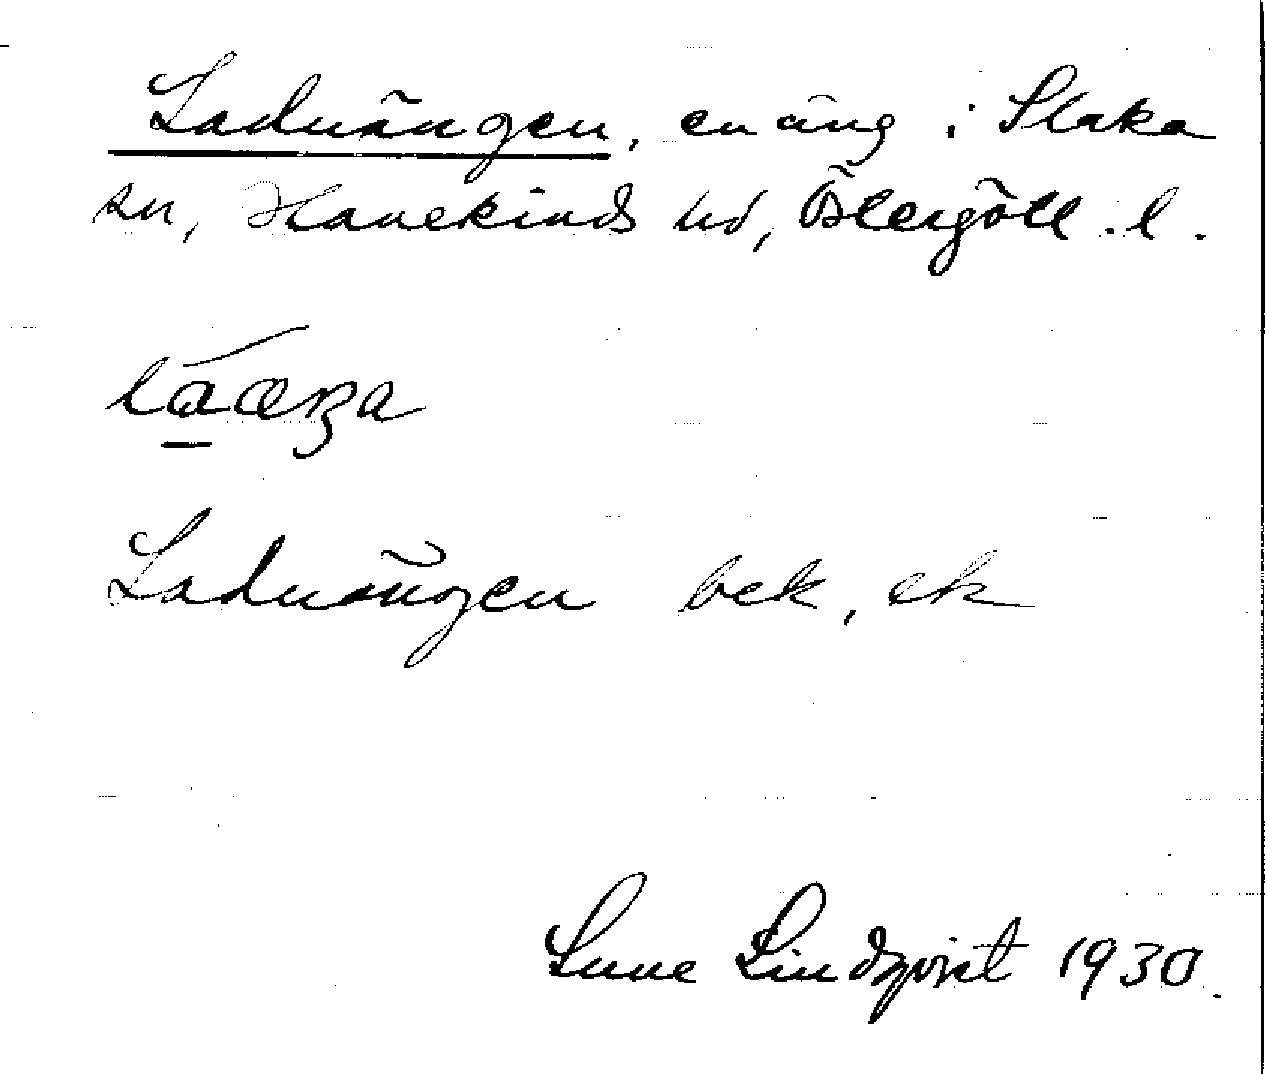 Laduängen, en äng i Slaka
sn, Hanekinds hd, Östergötl. l.
Laduängen bek, ek
Sune Lindqvist 1930.